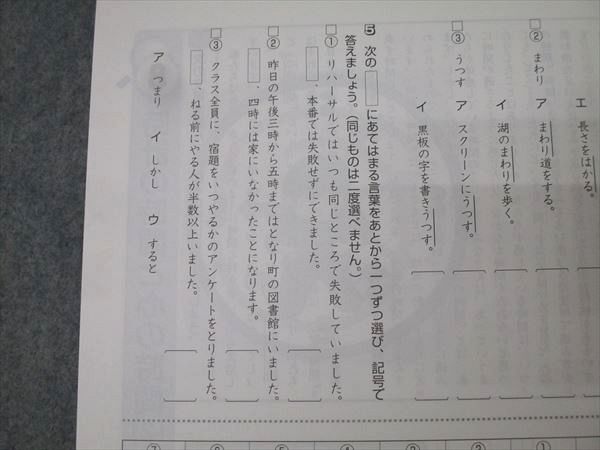 エ 長さをはかる。
□② まわり
ア まわり道をする。
イ 湖のまわりを歩く。
□③ うつす
ア スクリーンにうつす。
イ 黒板の字を書きうつす。
5 次の□にあてはまる言葉をあとから一つずつ選び、記号で
答えましょう。(同じものは二度選べません。)
□① リハーサルではいつも同じところで失敗していました。
□、本番では失敗せずにできました。
□② 昨日の午後三時から五時まではとなり町の図書館にいました。
□、四時には家にいなかったことになります。
□③ クラス全員に、宿題をいつやるかのアンケートをとりました。
□、ねる前にやる人が半数以上いました。
ア つまり イ しかし ウ すると